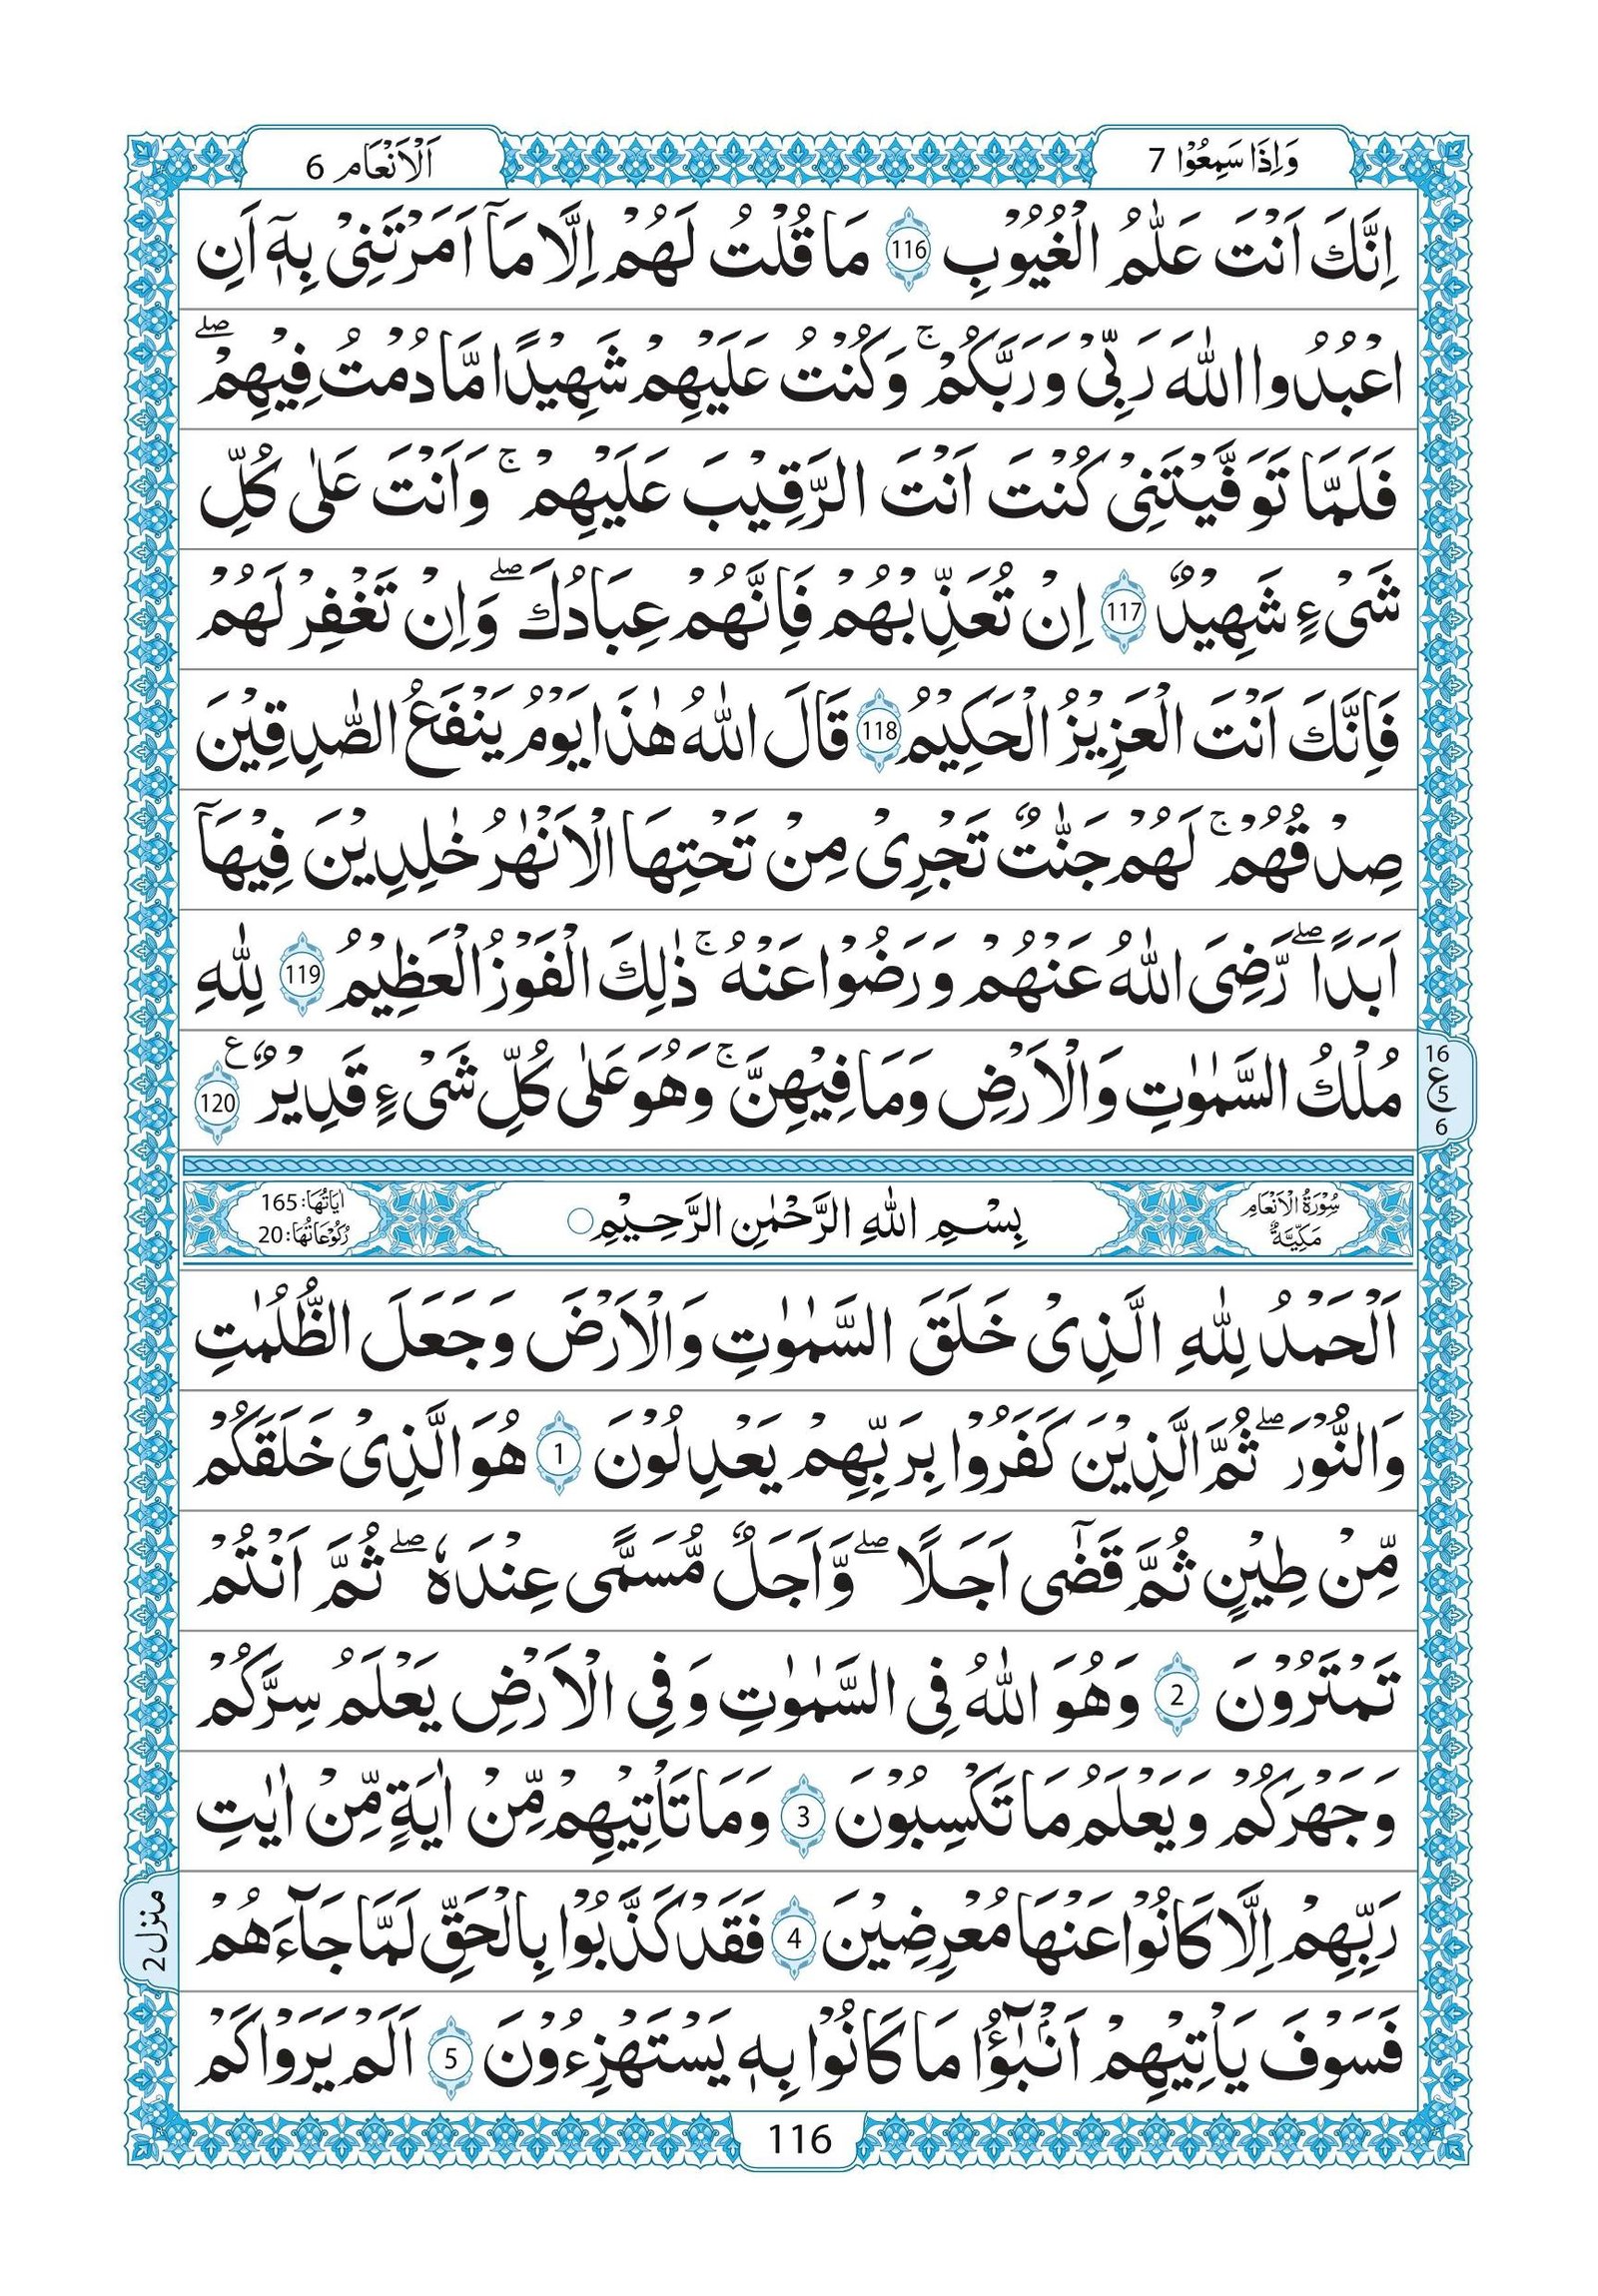 وَاِذَا سَمِعُوْا 7
اَلْاَنْعَام 6
اِنَّكَ اَنْتَ عَلَّامُ الْغُيُوْبِ 116 مَا قُلْتُ لَهُمْ اِلَّا مَآ اَمَرْتَنِىْ بِهٖٓ اَنِ
اعْبُدُوا اللّٰهَ رَبِّىْ وَرَبَّكُمْ ۚ وَكُنْتُ عَلَيْهِمْ شَهِيْدًا مَّا دُمْتُ فِيْهِمْ ۖ
فَلَمَّا تَوَفَّيْتَنِىْ كُنْتَ اَنْتَ الرَّقِيْبَ عَلَيْهِمْ ۚ وَاَنْتَ عَلٰى كُلِّ
شَىْءٍ شَهِيْدٌ 117 اِنْ تُعَذِّبْهُمْ فَاِنَّهُمْ عِبَادُكَ ۖ وَاِنْ تَغْفِرْ لَهُمْ
فَاِنَّكَ اَنْتَ الْعَزِيْزُ الْحَكِيْمُ 118 قَالَ اللّٰهُ هٰذَا يَوْمُ يَنْفَعُ الصّٰدِقِيْنَ
صِدْقُهُمْ ۚ لَهُمْ جَنّٰتٌ تَجْرِىْ مِنْ تَحْتِهَا الْاَنْهٰرُ خٰلِدِيْنَ فِيْهَآ
اَبَدًا ۖ رَّضِىَ اللّٰهُ عَنْهُمْ وَرَضُوْا عَنْهُ ۚ ذٰلِكَ الْفَوْزُ الْعَظِيْمُ 119 لِلّٰهِ
مُلْكُ السَّمٰوٰتِ وَالْاَرْضِ وَمَا فِيْهِنَّ ۚ وَهُوَ عَلٰى كُلِّ شَىْءٍ قَدِيْرٌ ع 120
16
ع 5
6
سُوْرَةُ الْاَنْعَامِ
مَكِّيَّةٌ
بِسْمِ اللّٰهِ الرَّحْمٰنِ الرَّحِيْمِ
اٰيَاتُهَا: 165
رُكُوْعَاتُهَا: 20
اَلْحَمْدُ لِلّٰهِ الَّذِىْ خَلَقَ السَّمٰوٰتِ وَالْاَرْضَ وَجَعَلَ الظُّلُمٰتِ
وَالنُّوْرَ ۖ ثُمَّ الَّذِيْنَ كَفَرُوْا بِرَبِّهِمْ يَعْدِلُوْنَ 1 هُوَ الَّذِىْ خَلَقَكُمْ
مِّنْ طِيْنٍ ثُمَّ قَضٰٓى اَجَلًا ۖ وَّاَجَلٌ مُّسَمًّى عِنْدَهٗ ۖ ثُمَّ اَنْتُمْ
تَمْتَرُوْنَ 2 وَهُوَ اللّٰهُ فِى السَّمٰوٰتِ وَفِى الْاَرْضِ يَعْلَمُ سِرَّكُمْ
وَجَهْرَكُمْ وَيَعْلَمُ مَا تَكْسِبُوْنَ 3 وَمَا تَاْتِيْهِمْ مِّنْ اٰيَةٍ مِّنْ اٰيٰتِ
رَبِّهِمْ اِلَّا كَانُوْا عَنْهَا مُعْرِضِيْنَ 4 فَقَدْ كَذَّبُوْا بِالْحَقِّ لَمَّا جَآءَهُمْ
فَسَوْفَ يَاْتِيْهِمْ اَنْۢبٰٓؤُا مَا كَانُوْا بِهٖ يَسْتَهْزِءُوْنَ 5 اَلَمْ يَرَوْا كَمْ
منزل 2
116